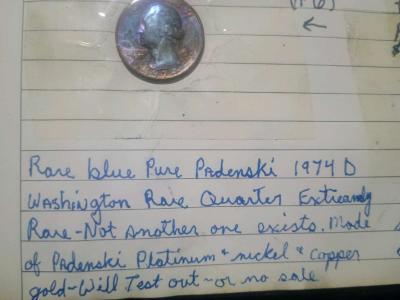 (P6)
Rare blue Pure Padenski 1974 D
Washington Rare Quarter Extreamly
Rare - Not Another one exists. Made
of Padenski Platinum + nickel + copper
gold - Will Test out - or no sale